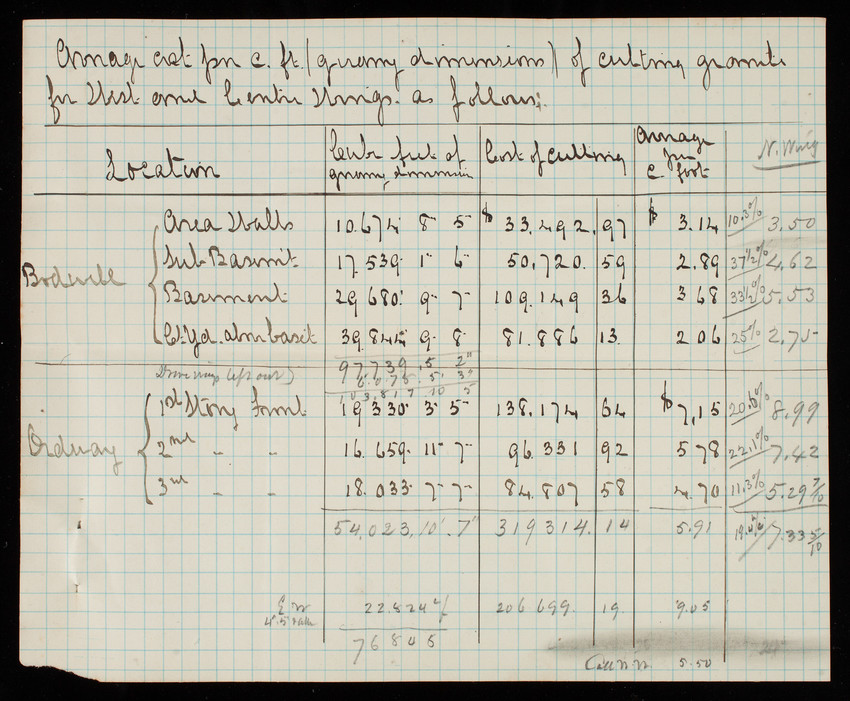 Average cost per c. ft. (quarry dimensions) of cutting granite
for West and Centre Wings. as follows:
Location
Cube feet of quarry dimension
Cost of Cutting
Average per c foot
N. Wing
Bodwell
Area Walls 10.674 8 5 $ 33.492. 97 $ 3.14 10.3% 3.50
Sub Basemt. 17.539 1 6 50,720. 59 2.89 37 1/2% 4.62
Basement 29 680 9 7 109.149 36 3 68 33 1/2% 5.53
Ct Yd. abv. basmt 39.844 9 8 81.886 13. 2 06 25% 2.75
97.739. 5 2"
6.078. 5. 3"
103.817 10 5
Ordway
1st Story Front 19 330 3 5 138.174 64 $ 7,15 20.6% 8.99
2nd " " 16.659. 11 7 96.331 92 5 78 22.1% 7.42
3rd " " 18.033 7 7 84.807 58 4.70 11.3% 5.29 7/10
54,023, 10' 7" 319314. 14 5.91 7.33 5/10
22.824 206 699. 19. 9.05
76 8
5.50